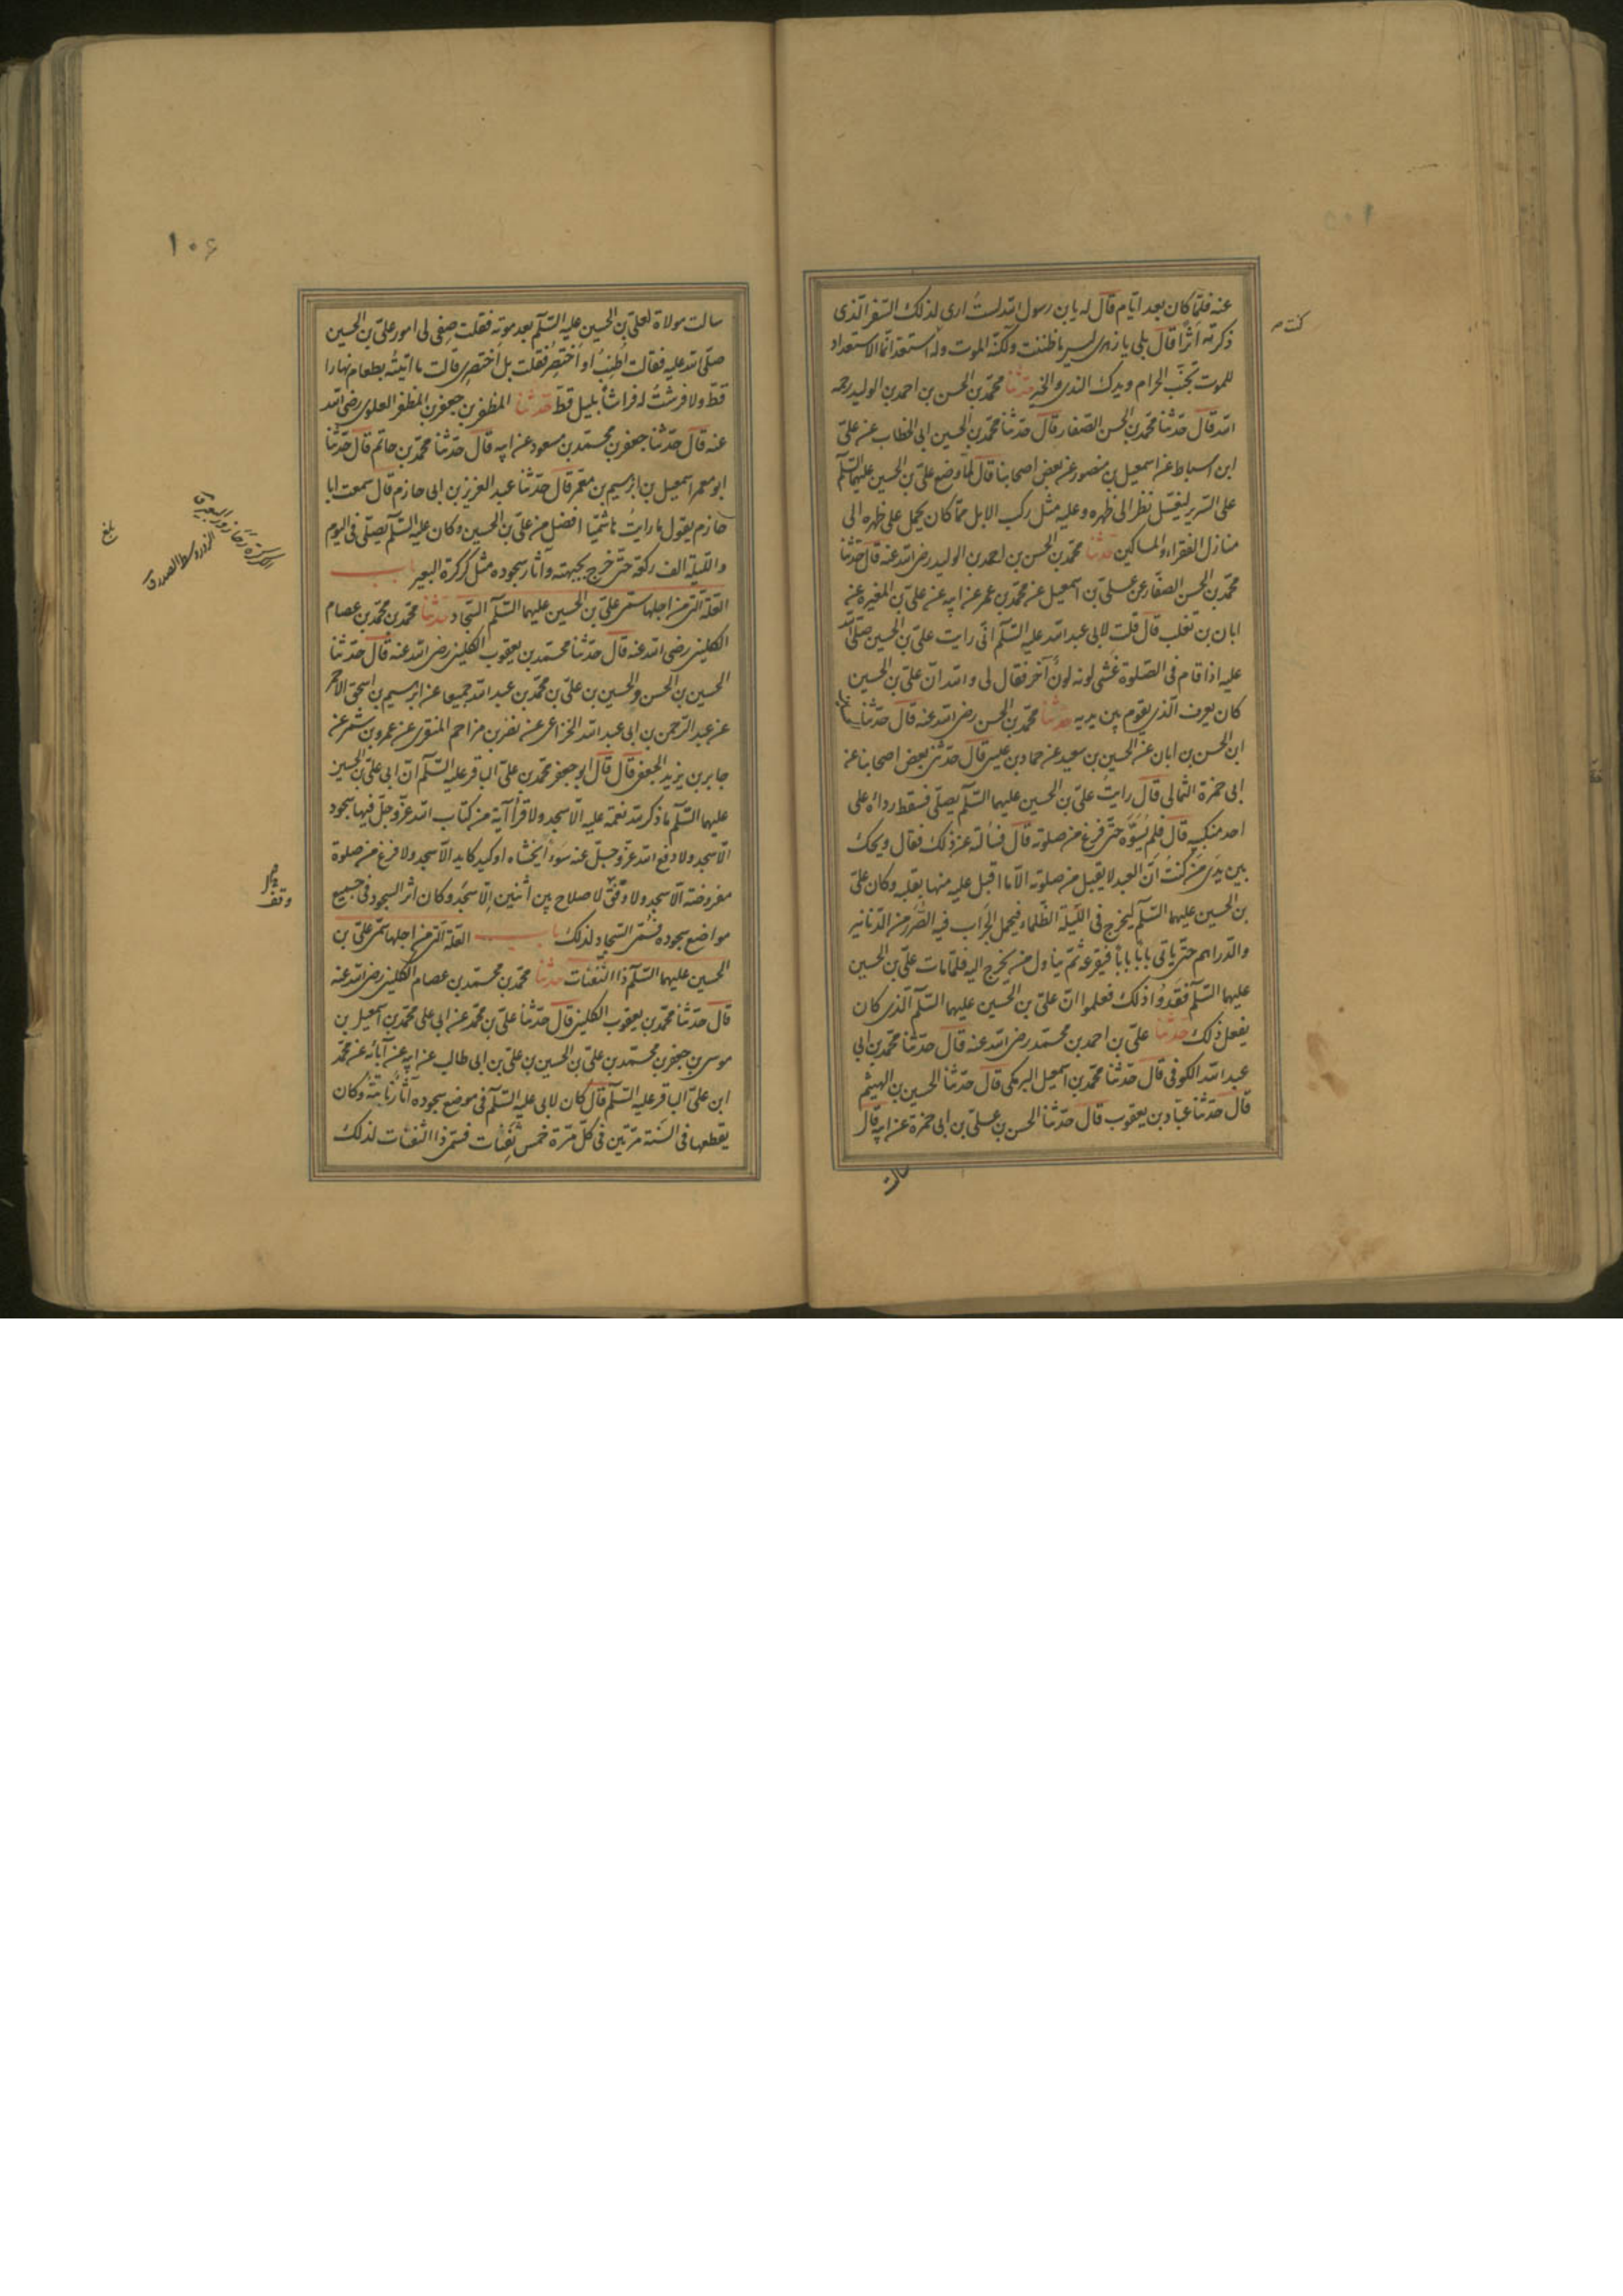 عنه فلمّا كان بعد ايّام قال له يا بن رسول الله لستُ ارى لذلك السّفر الّذى
ذكرته اثرًا قال بلى يا زهرى ليس ما ظننت ولكنّه الموت وله استعدّ انّما الاستعداد
للموت تجنّب الحرام وبذل الندى والخير حدثنا محمّد بن الحسن بن احمد بن الوليد رحمه
الله قال حدّثنا محمّد بن الحسن الصّفار قال حدّثنا محمّد بن الحسين ابى الخطاب عن علىّ
ابن اسباط عن اسمعيل بن منصور عن بعض اصحابنا قال لمّا وضع علىّ بن الحسين عليهما السّلم
على السّرير ليغسّل نظر الى ظهره وعليه مثل ركب الابل ممّا كان يحمل على ظهره الى
منازل الفقراء والمساكين حدثنا محمّد بن الحسن بن احمد بن الوليد رضى الله عنه قال حدّثنا
محمّد بن الحسن الصفّار عن علىّ بن اسمعيل عن محمّد بن عمر عن ابيه عن علىّ بن المغيرة عن
ابان بن تغلب قال قلت لابى عبد الله عليه السّلم انّى رايت علىّ بن الحسين صلّى الله
عليه اذا قام فى الصّلوة غشى لونه لونٌ آخر فقال لى والله انّ علىّ بن الحسين
كان يعرف الّذى يقوم بين يديه حدثنا محمّد بن الحسن رضى الله عنه قال حدّثنا
ابن الحسن بن ابان عن الحسين بن سعيد عن حماد بن عيسى قال حدّثنى بعض اصحابنا عن
ابى حمزة الثمالى قال رايتُ علىّ بن الحسين عليهما السّلم يصلّى فسقط رداؤه على
احد منكبيه قال فلم يُسَوِّه حتّى فرغ من صلوته قال فسألته عن ذلك فقال ويحك
بين يدَى مَن كنتُ انّ العبد لا يقبل من صلوته الّا ما اقبل عليه منها بقلبه وكان علىّ
بن الحسين عليهما السّلم ليخرج فى اللّيلة الظّلماء فيحمل الجراب فيه الصُّرَر من الدّنانير
والدّراهم حتّى ياتى بابًا بابًا فيقرعه ثمّ يناول من يخرج اليه فلمّا مات علىّ بن الحسين
عليهما السّلم فقدُوا ذلك فعلموا انّ علىّ بن الحسين عليهما السّلم الّذى كان
يفعل ذلك حدثنا علىّ بن احمد بن محمّد رضى الله عنه قال حدّثنا محمّد بن ابى
عبد الله الكوفى قال حدّثنا محمّد بن اسمعيل البرمكى قال حدّثنا الحسين بن الهيثم
قال حدّثنا عبّاد بن يعقوب قال حدّثنا الحسن بن علىّ بن ابى حمزة عن ابيه قال
سالت
كنت
١٠٦
سالت مولاة لعلىّ بن الحسين عليه السّلم بعد موته فقلت صِفى لى امور علىّ بن الحسين
صلّى الله عليه فقالت اُطنِبُ او اَختصِرُ فقلت بل اختصِرى قالت ما اتيتُه بطعام نهارا
قطّ ولا فرشتُ له فراشًا بليل قطّ حدثنا المظفر بن جعفر بن المظفر العلوى رضى الله
عنه قال حدّثنا جعفر بن محمّد بن مسعود عن ابيه قال حدّثنا محمّد بن حاتم قال حدّثنا
ابو معمر اسمعيل بن ابرهيم بن معمّر قال حدّثنا عبد العزيز بن ابى حازم قال سمعت ابا
حازم يقول ما رايتُ هاشميّا افضل من علىّ بن الحسين وكان عليه السّلم يصلّى فى اليوم
واللّيلة الف ركعة حتّى خرج بجبهته وآثار سجوده مثل كركرة البعير باب
العلّة الّتى من اجلها سمّى علىّ بن الحسين عليهما السّلم السّجاد حدثنا محمّد بن محمّد بن عصام
الكلينى رضى الله عنه قال حدّثنا محمّد بن يعقوب الكلينى رضى الله عنه قال حدّثنا
الحسين بن الحسن والحسين بن علىّ بن محمّد بن عبد الله جميعا عن ابرهيم بن اسحق الاحمر
عن عبد الرّحمن بن ابى عبد الله الخزاعى عن نصر بن مزاحم المنقرى عن عمرو بن شمر عن
جابر بن يزيد الجعفى قال قال ابو جعفر محمّد بن علىّ الباقر عليه السّلم انّ ابى علىّ بن الحسين
عليهما السّلم ما ذكر لله نعمة عليه الّا سجد ولا قرأ آية من كتاب الله عزّ وجلّ فيها سجود
الّا سجد ولا دفع الله عزّ وجلّ عنه سوءًا يخشاه او كيد كايد الّا سجد ولا فرغ من صلوة
مفروضة الّا سجد ولا وُفّق لاصلاح بين اثنين الّا سجد وكان اثر السجود فى جميع
مواضع سجوده فسُمّى السّجاد لذلك باب العلّة الّتى من اجلها سمّى علىّ بن
الحسين عليهما السّلم ذا الثّفنات حدثنا محمّد بن محمّد بن عصام الكلينى رضى الله عنه
قال حدّثنا محمّد بن يعقوب الكلينى قال حدّثنا علىّ بن محمّد عن ابى على محمّد بن اسمعيل بن
موسى بن جعفر بن محمّد بن علىّ بن الحسين بن علىّ بن ابى طالب عن ابيه عن آبائه عن محمّد
ابن علىّ الباقر عليه السّلم قال كان لابى عليه السّلم فى موضع سجوده آثارٌ ناتيةٌ وكان
يقطعها فى السّنة مرّتين فى كلّ مرّة خمس ثفنات فسمّى ذا الثفنات لذلك
بلغ
وقف